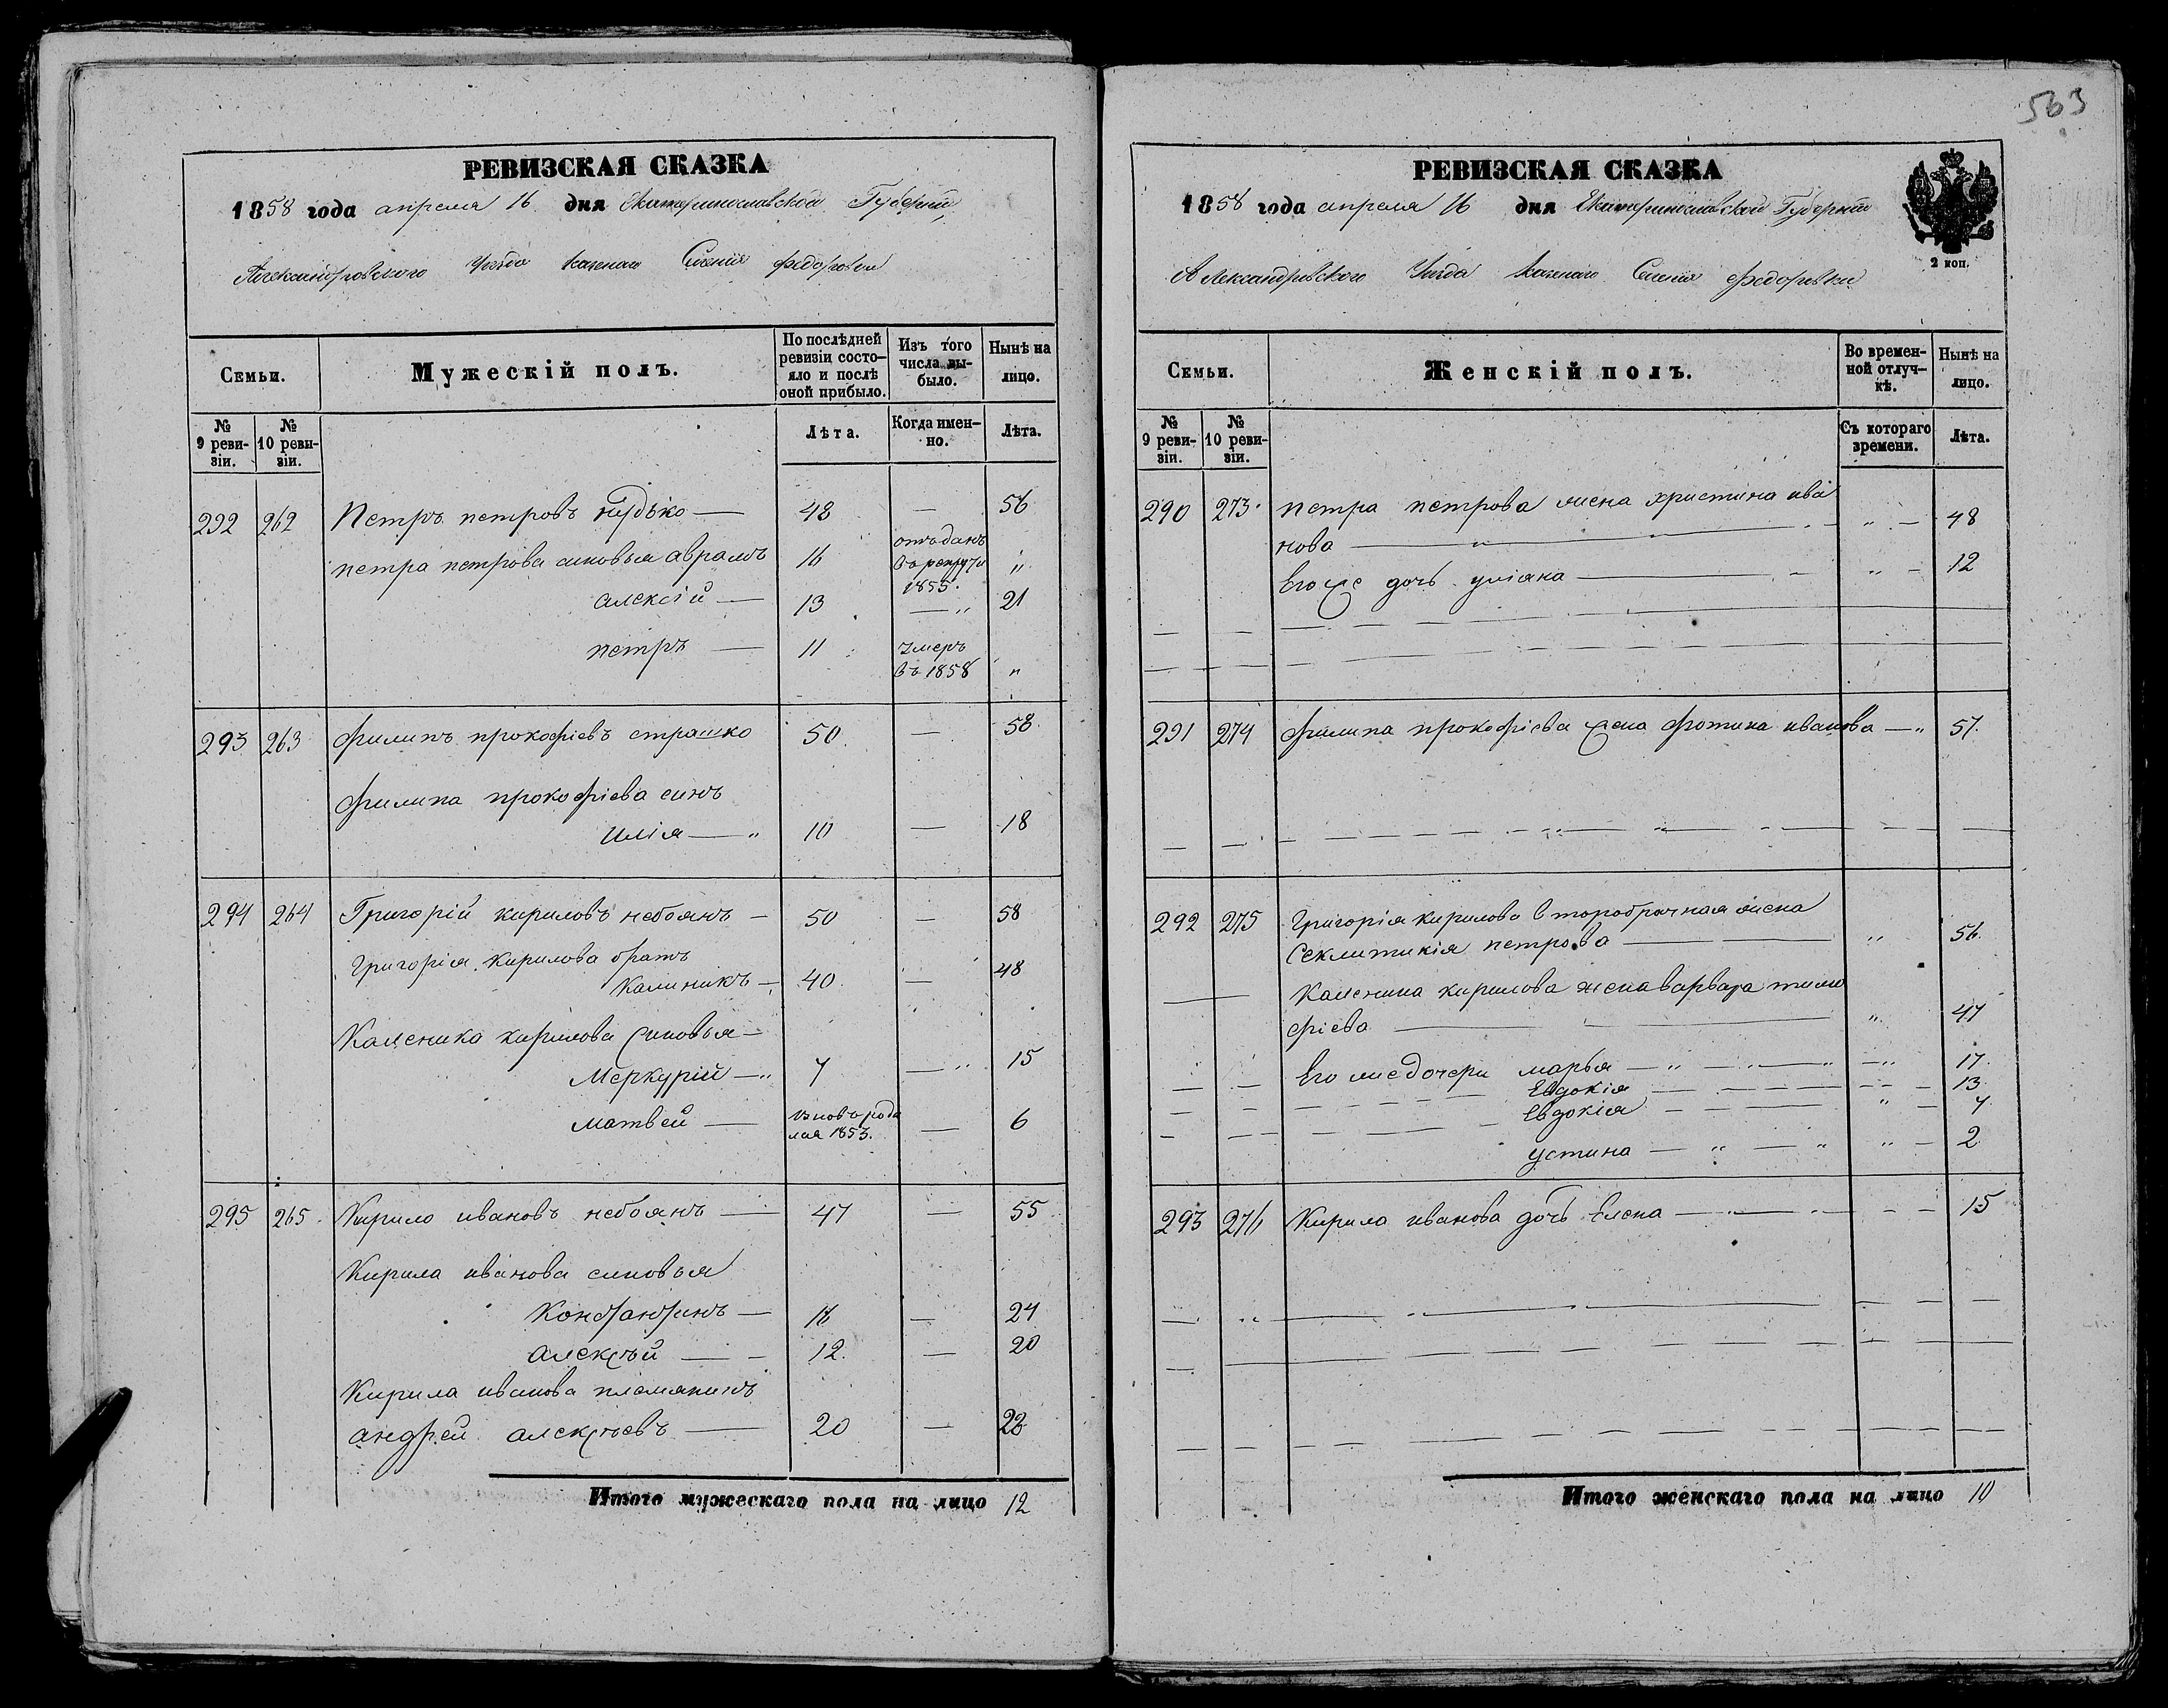 563
РЕВИЗСКАЯ СКАЗКА
1858 года апреля 16 дня Екатеринославской Губерніи
Александровского Уезда Казенаго Селенія федоровки
Семьи.
Мужескій полъ.
По послѣдней ревизіи состо-
яло и послѣ
оной прибыло.
Изъ того
числа вы-
было.
Нынѣ на
лицо.
№
9 реви-
зіи.
№
10 реви-
зіи.
Лѣта.
Когда имен-
но.
Лѣта.
292 262 Петръ петровъ — 48 — 56
петра петрова сыновья аврамъ 16 отъданъ
въ рекруты "
1855.
алексій — 13 — " 21
петръ — 11 умеръ
въ 1858 "
293 263 филипъ прокофіевъ страшко 50. — 58.
филипа прокофіева синъ
илія — " 10 — 18
294 264 Григорій кириловъ небоянъ — 50 — 58
Григорія кирилова братъ
Калиникъ — 40. — 48
Каленика кирилова сыновья —
Меркурій — " 7 — " 15
матвей — вновь рода
лся 1853. — 6
295 265. Кирило ивановъ небоянъ — 47 — 55
Кирила иванова сыновья
Константинъ — 16 — 24
алексѣй — 12. — 20
Кирила иванова племяникъ
андрей алексѣевъ — 20 — 28
Итого мужескаго пола на лицо 12
РЕВИЗСКАЯ СКАЗКА
1858 года апреля 16 дня Екатеринославской Губерніи
2 коп.
Александровского Уезда Казенаго Селенія федоровки
Семьи.
Женскій полъ.
Во времен-
ной отлуч-
кѣ.
Нынѣ на
лицо.
№
9 реви-
зіи.
№
10 реви-
зіи.
Съ котораго
времени.
Лѣта.
290 273. петра петрова жена христина ива
нова — " — 48
Его же дочь уліяна — " — 12
291 274 филипа прокофіева жена фотина иванова — " 57.
292 275 Григорія кирилова второбрачная жена
Секлитикія петрова — " 56.
Каленика кирилова жена варвара тимо
фіева — " 47
Его же дочери марья — " — " 17.
Евдокія — 13.
Евдокія — " — 7
устина — " — " — 2
293 276 Кирила иванова дочь Елена — 15
Итого женскаго пола на лицо 10